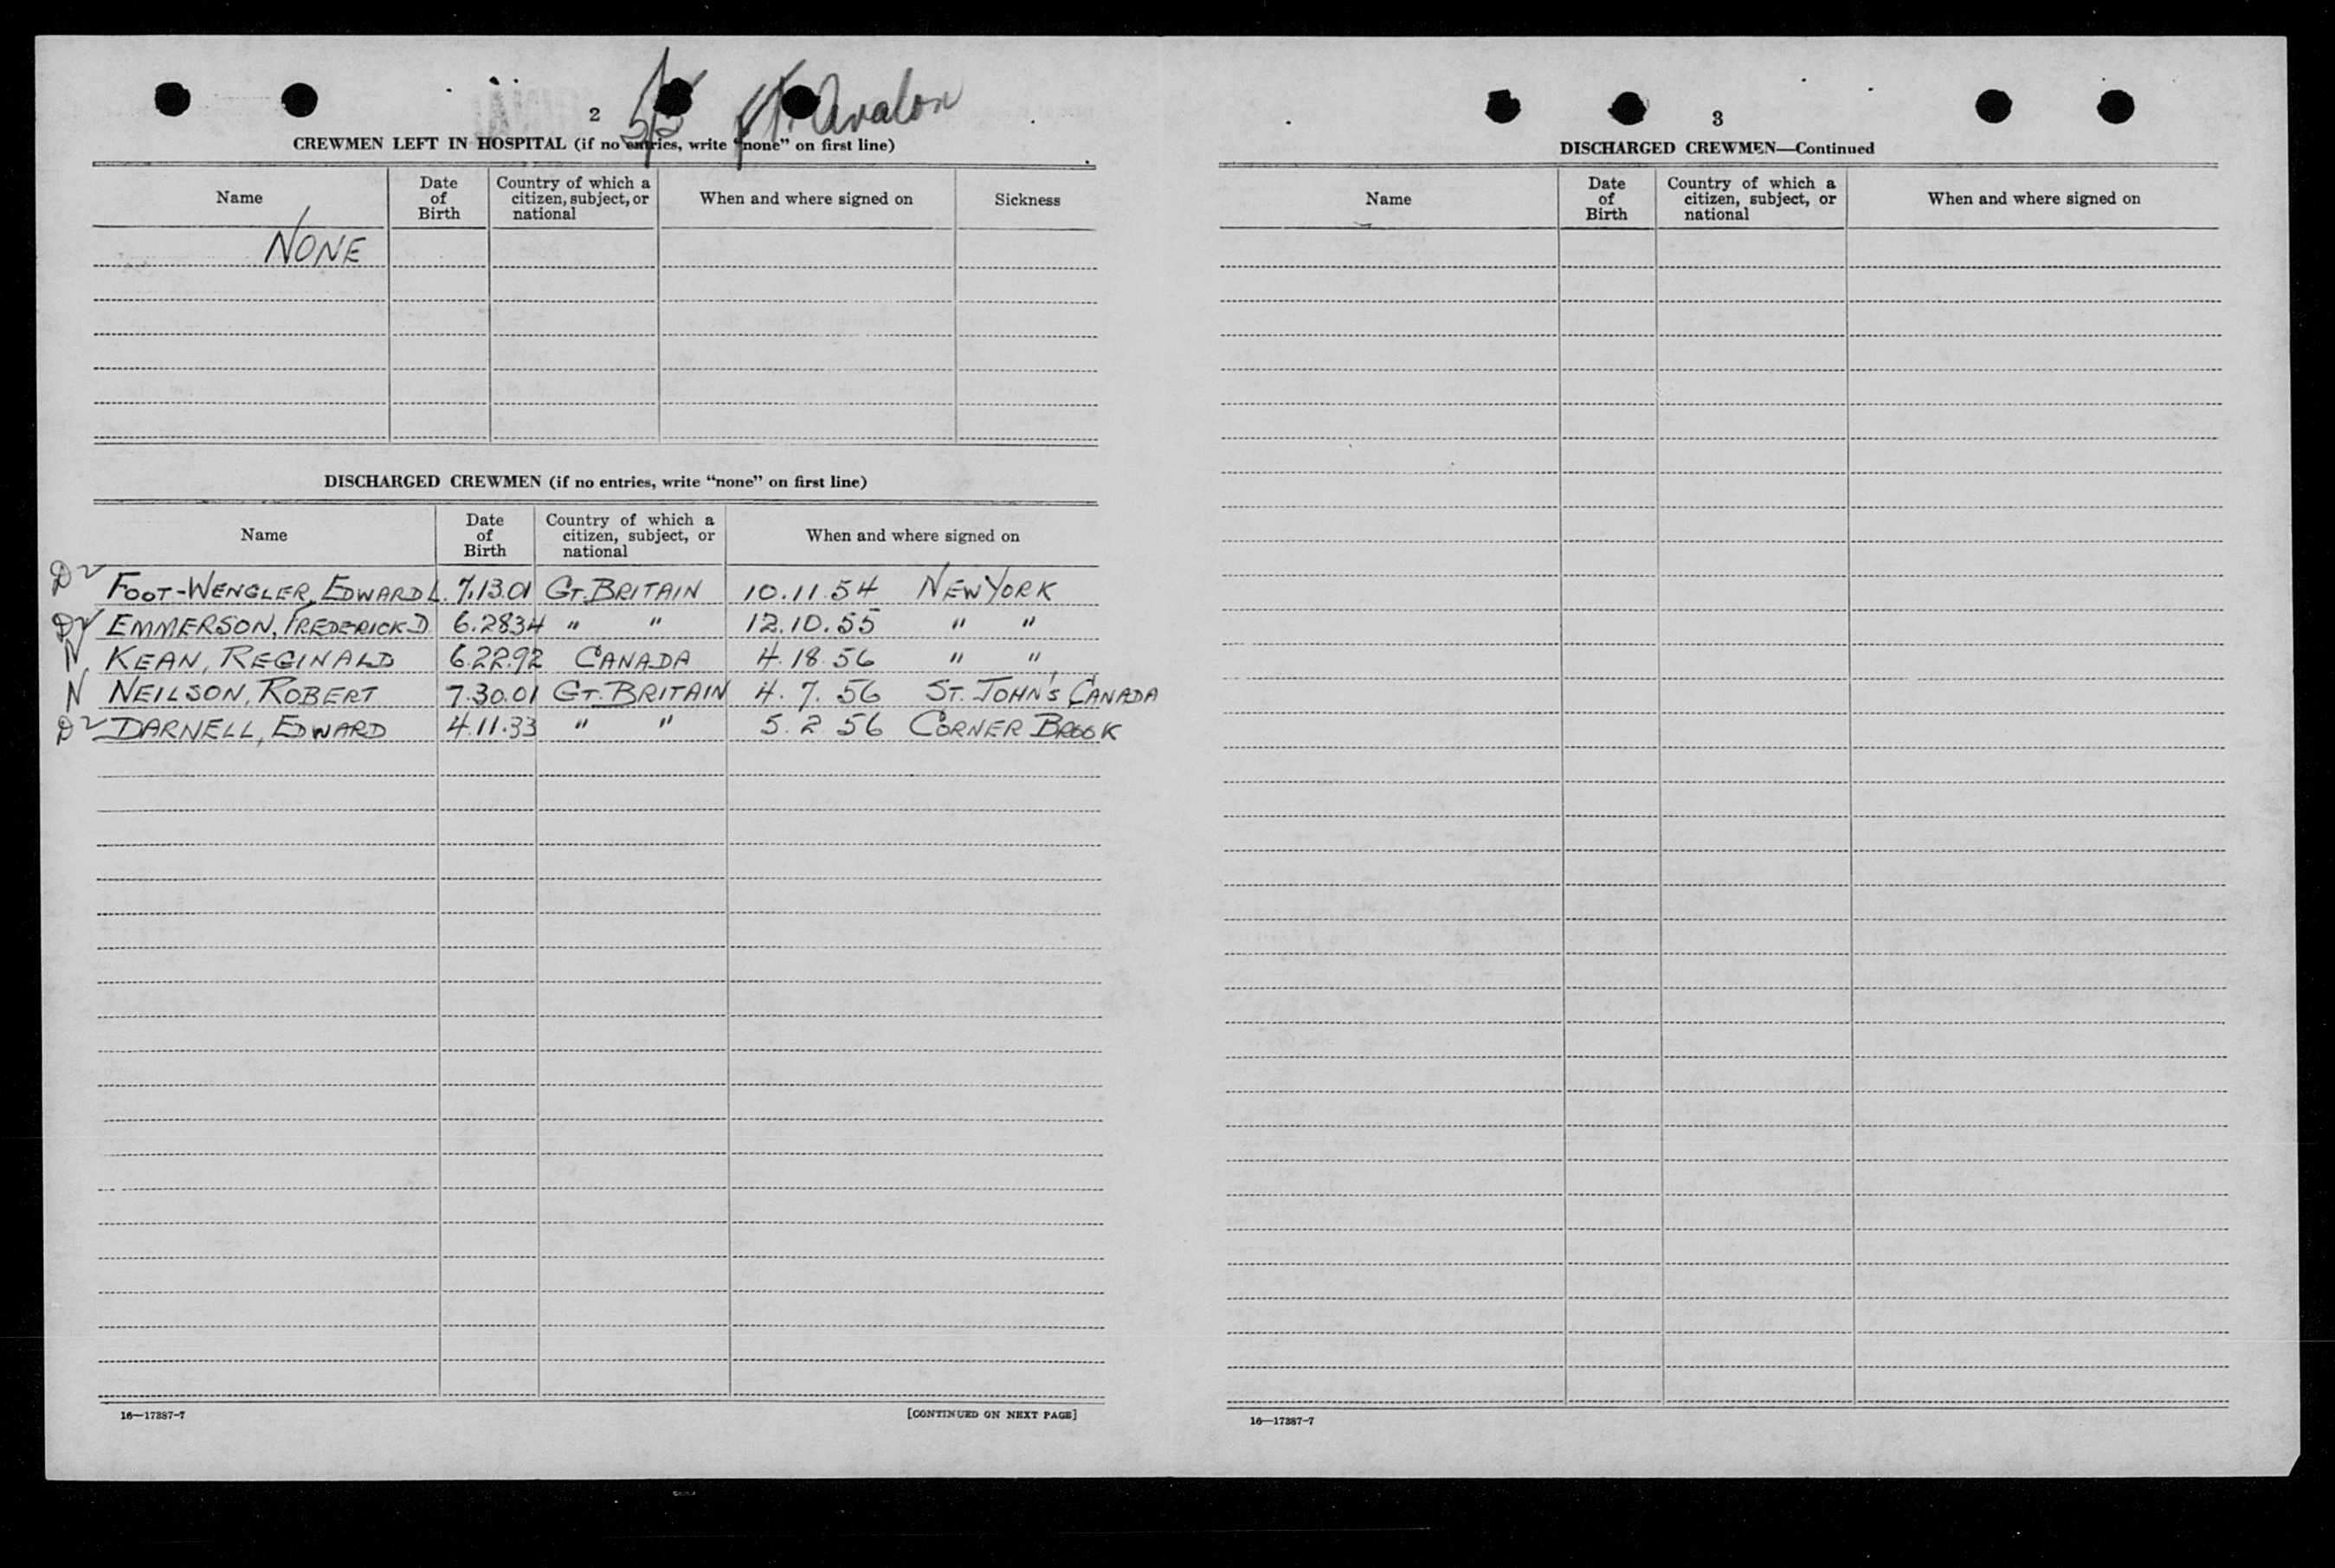 2
S/S Ft. Avalon
CREWMEN LEFT IN HOSPITAL (if no entries, write "none" on first line)
Name Date of Birth Country of which a citizen, subject, or national When and where signed on Sickness
NONE
DISCHARGED CREWMEN (if no entries, write "none" on first line)
Name Date of Birth Country of which a citizen, subject, or national When and where signed on
FOOT-WENGLER, EDWARD L. 7.13.01 GT. BRITAIN 10.11.54 NEW YORK
EMMERSON, FREDERICK D 6.28 34 " " 12.10.55 " "
N KEAN, REGINALD 6.22.92 CANADA 4.18.56 " "
N NEILSON, ROBERT 7.30.01 GT. BRITAIN 4.7.56 ST. JOHN'S CANADA
DARNELL, EDWARD 4.11.33 " " 5.2 56 CORNER BROOK
16—17387-7 [CONTINUED ON NEXT PAGE]
3
DISCHARGED CREWMEN—Continued
Name Date of Birth Country of which a citizen, subject, or national When and where signed on
16—17387-7